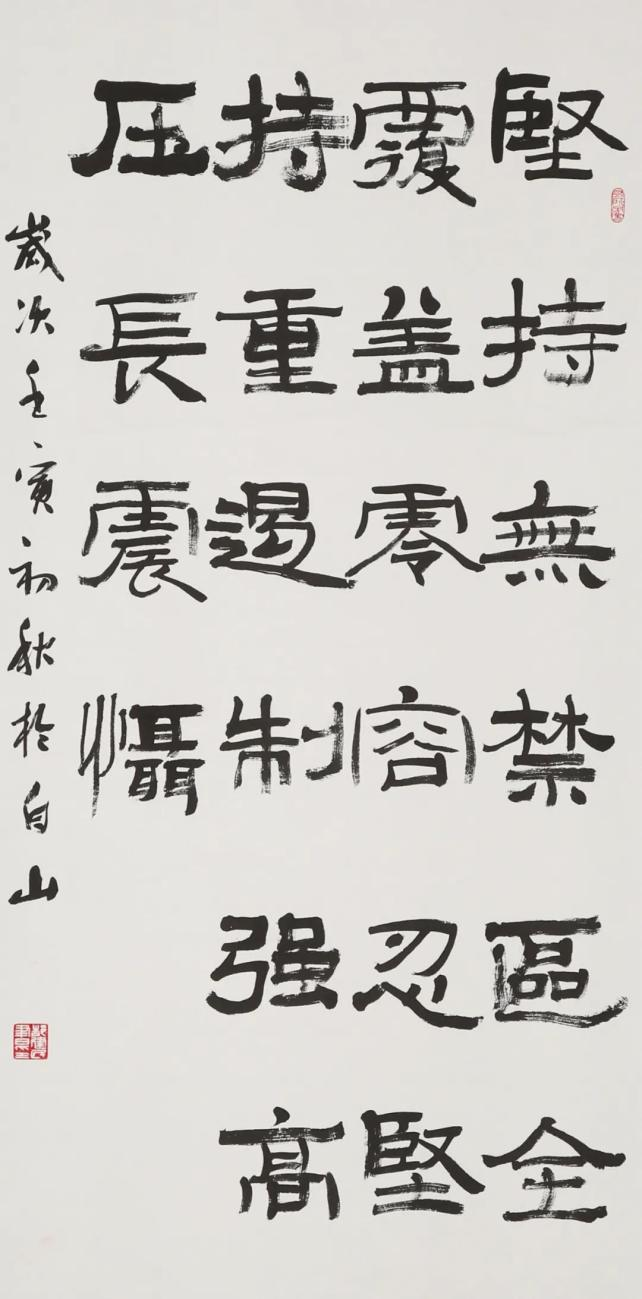 堅持無禁區全
覆盖零容忍堅
持重遏制强高
压長震懾
歲次壬寅初秋於白山